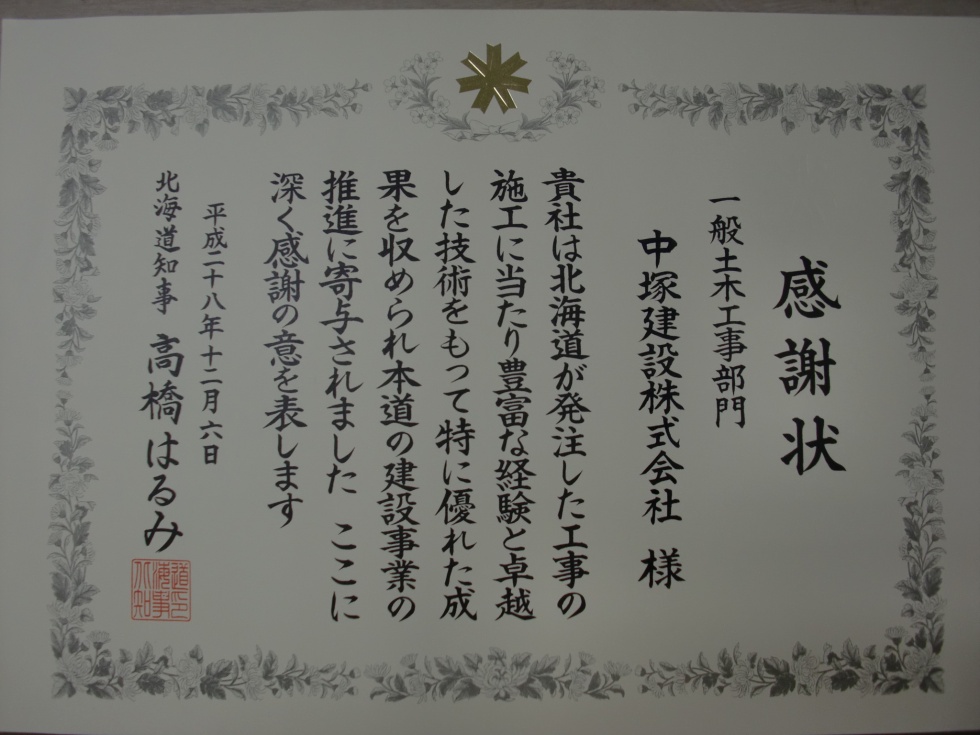 感謝状
一般土木工事部門
中塚建設株式会社 様
貴社は北海道が発注した工事の
施工に当たり豊富な経験と卓越
した技術をもって特に優れた成
果を収められ本道の建設事業の
推進に寄与されました ここに
深く感謝の意を表します
平成二十八年十二月六日
北海道知事 高橋はるみ